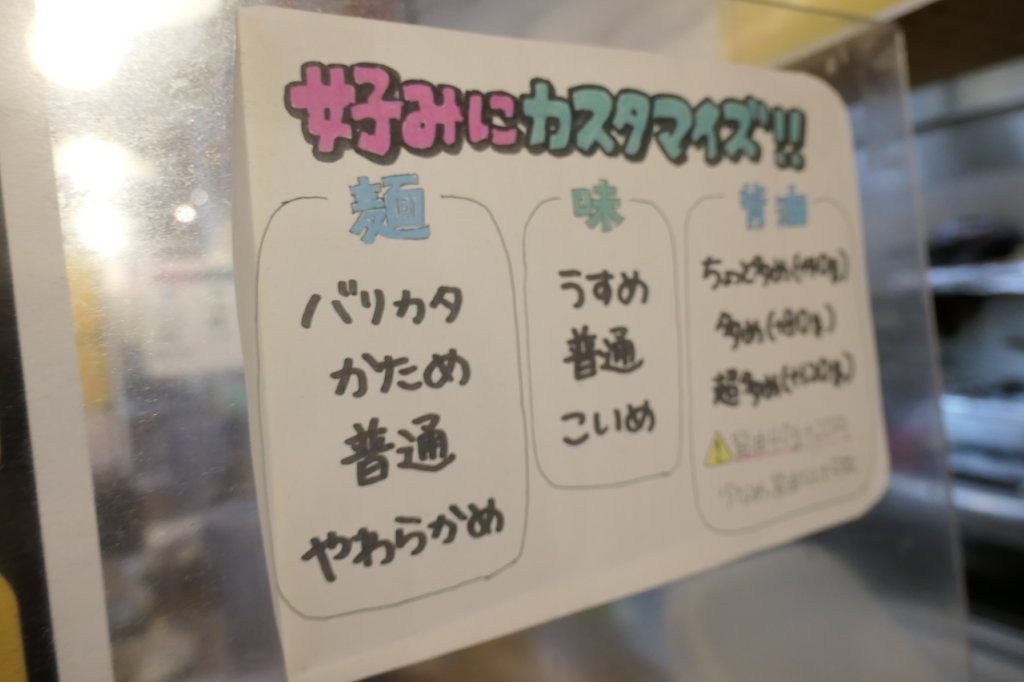 好みにカスタマイズ!!
麺
バリカタ
かため
普通
やわらかめ
味
うすめ
普通
こいめ
背油
ちょっと多め
多め
超多め